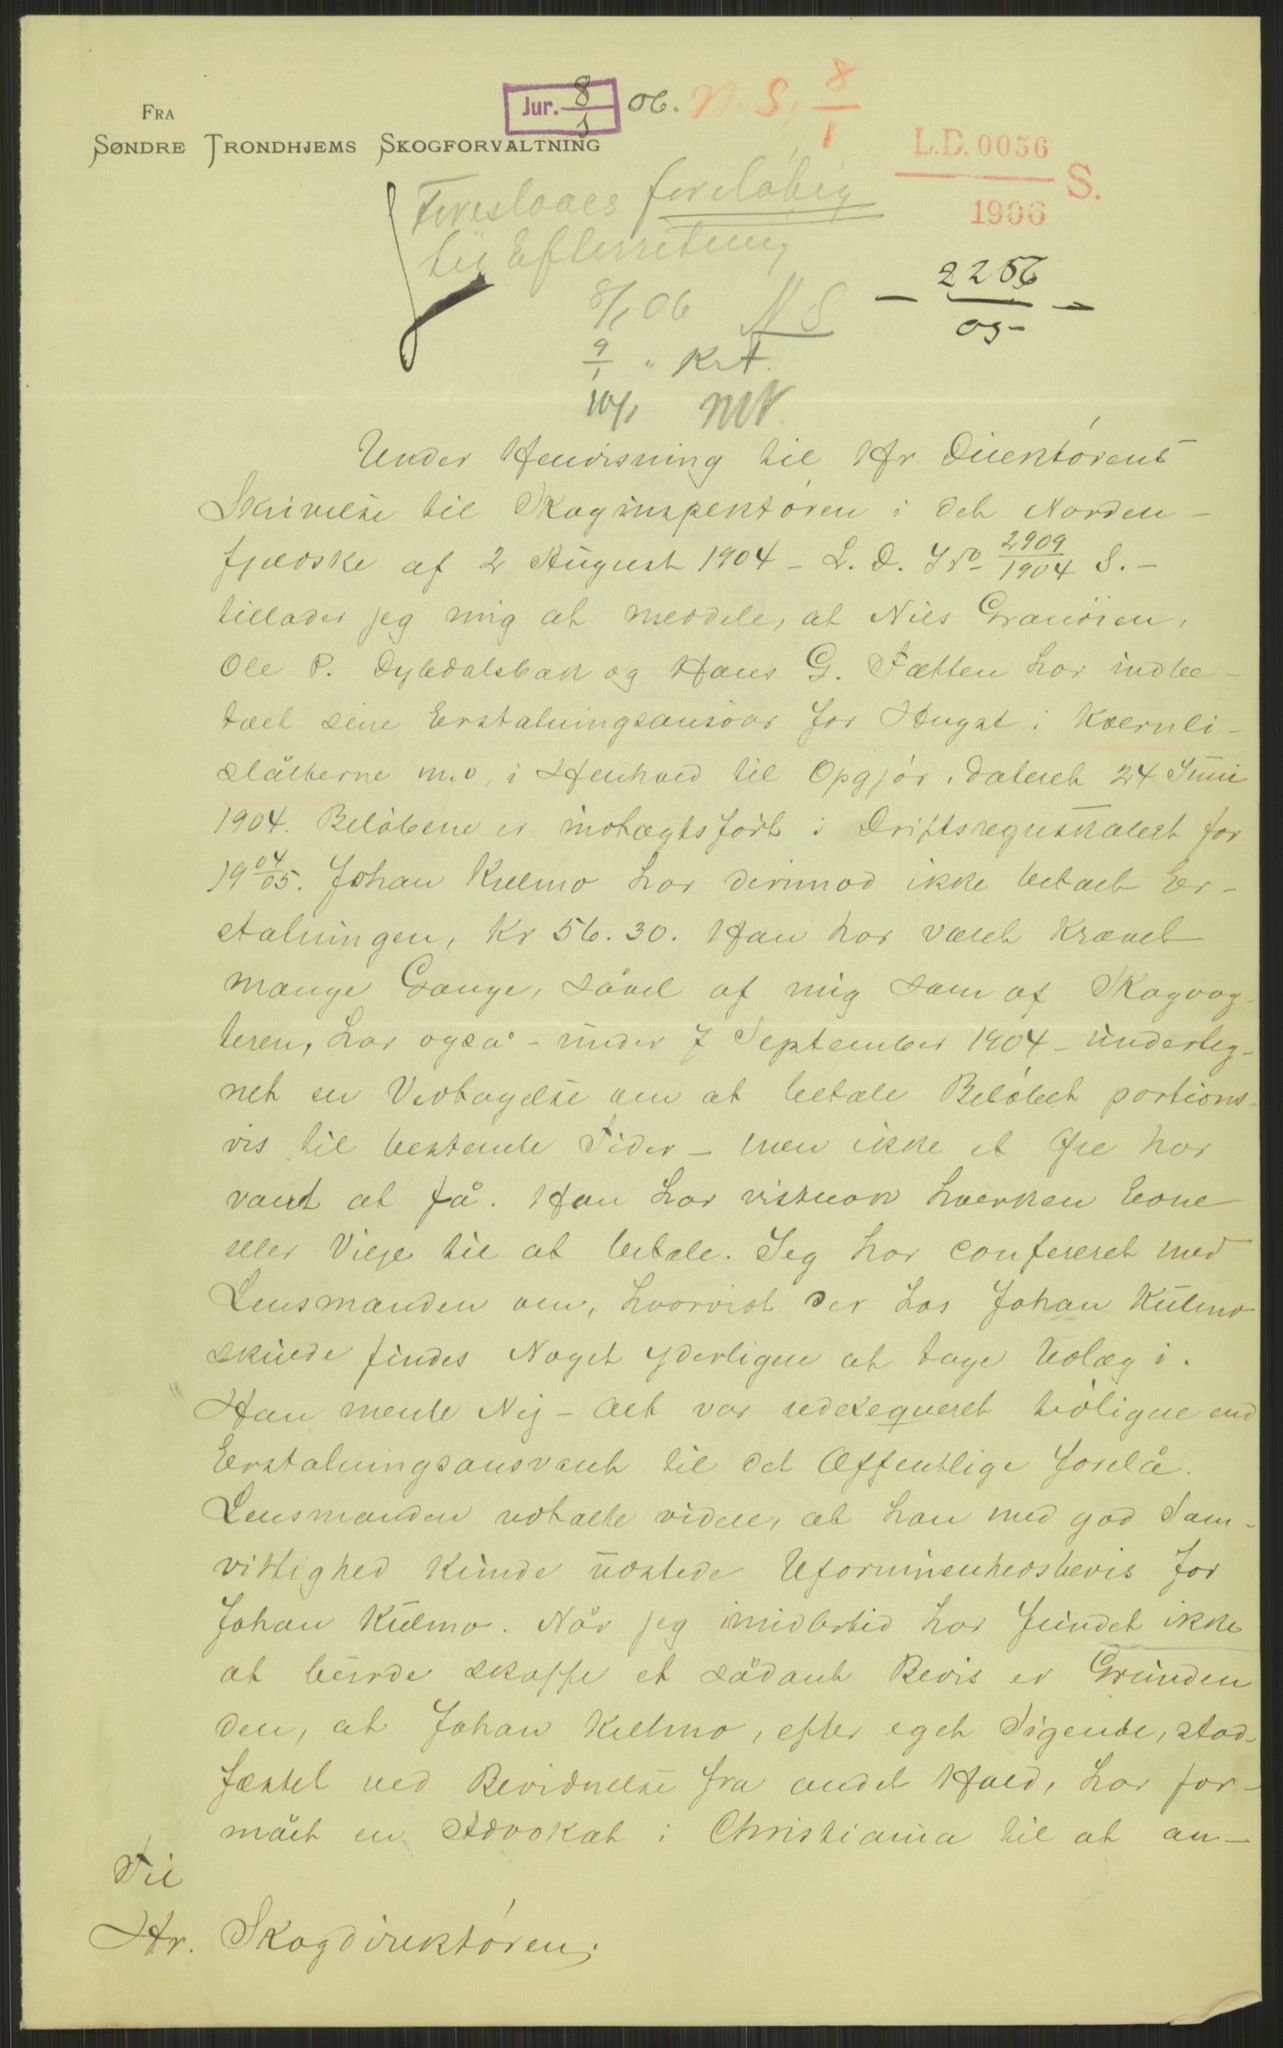 Jur. 8/1 06. N. S. 8/1
FRA
SØNDRE TRONDHJEMS SKOGFORVALTNING
L.D. 0056
1906 S.
Foreslaaes foreløbig
til Efterretning
8/1 06 N S
9/1 " Krt.
10/1
- 2256 -
05-
Under Henvisning til Hr Direktørens
Skrivelse til Skoginspektøren i det Norden-
fjeldske af 2 August 1904 - L. D. No 2909/1904 S. -
tillader jeg mig at meddele, at Nils Granöien,
Ole P. Dybdalsbak og Hans G. Tætten har indbe-
talt sine Erstatningsansvar for Hugst i Kvernli-
slåtterne m.v, i Henhold til Opgjør, dateret 24 Juni
1904. Beløbene er indtægtsført i Driftsregnskabet for
19 04/05. Johan Kulmo har derimod ikke betalt Er-
statningen, Kr 56.30. Han har været krævet
mange Gange, såvel af mig som af Skogvog-
teren, har også - under 7 September 1904 - underteg-
net en Vedtagelse om at betale Beløbet portions-
vis til bestemte Tider - men ikke et Øre har
været at få. Han har vistnok hverken Evne
eller Vilje til at betale. Jeg har confereret med
Lensmanden om, hvorvidt der hos Johan Kulmo
skulde findes Noget yderligere at tage Udlæg i.
Han mente Nej - det var udexequeret tidligere end
Erstatningsansvaret til det Offentlige forelå.
Lensmanden udtalte videre, at han med god Sam-
vittighed kunde udstede Uformuenhedsbevis for
Johan Kulmo. Når jeg imidlertid har fundet ikke
at burde skaffe et sådant Bevis er Grunden
den, at Johan Kulmo, efter eget Sigende, stad-
fæstet ved Bevidnelse fra andet Hold, har for-
mået en Advokat i Christiania til at an-
Til
Hr. Skogdirektøren.